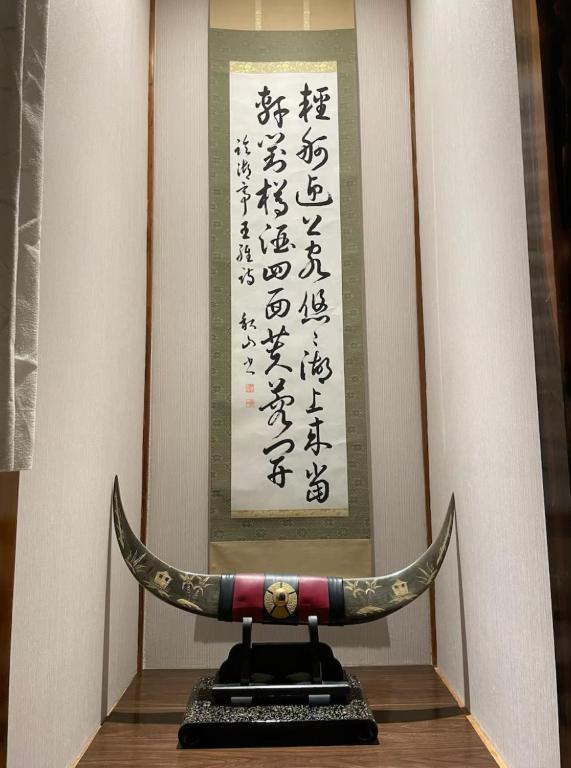 輕舸迎上客悠〻湖上來當
軒對樽酒四面芙蓉開
臨湖亭王維詩 秋山書